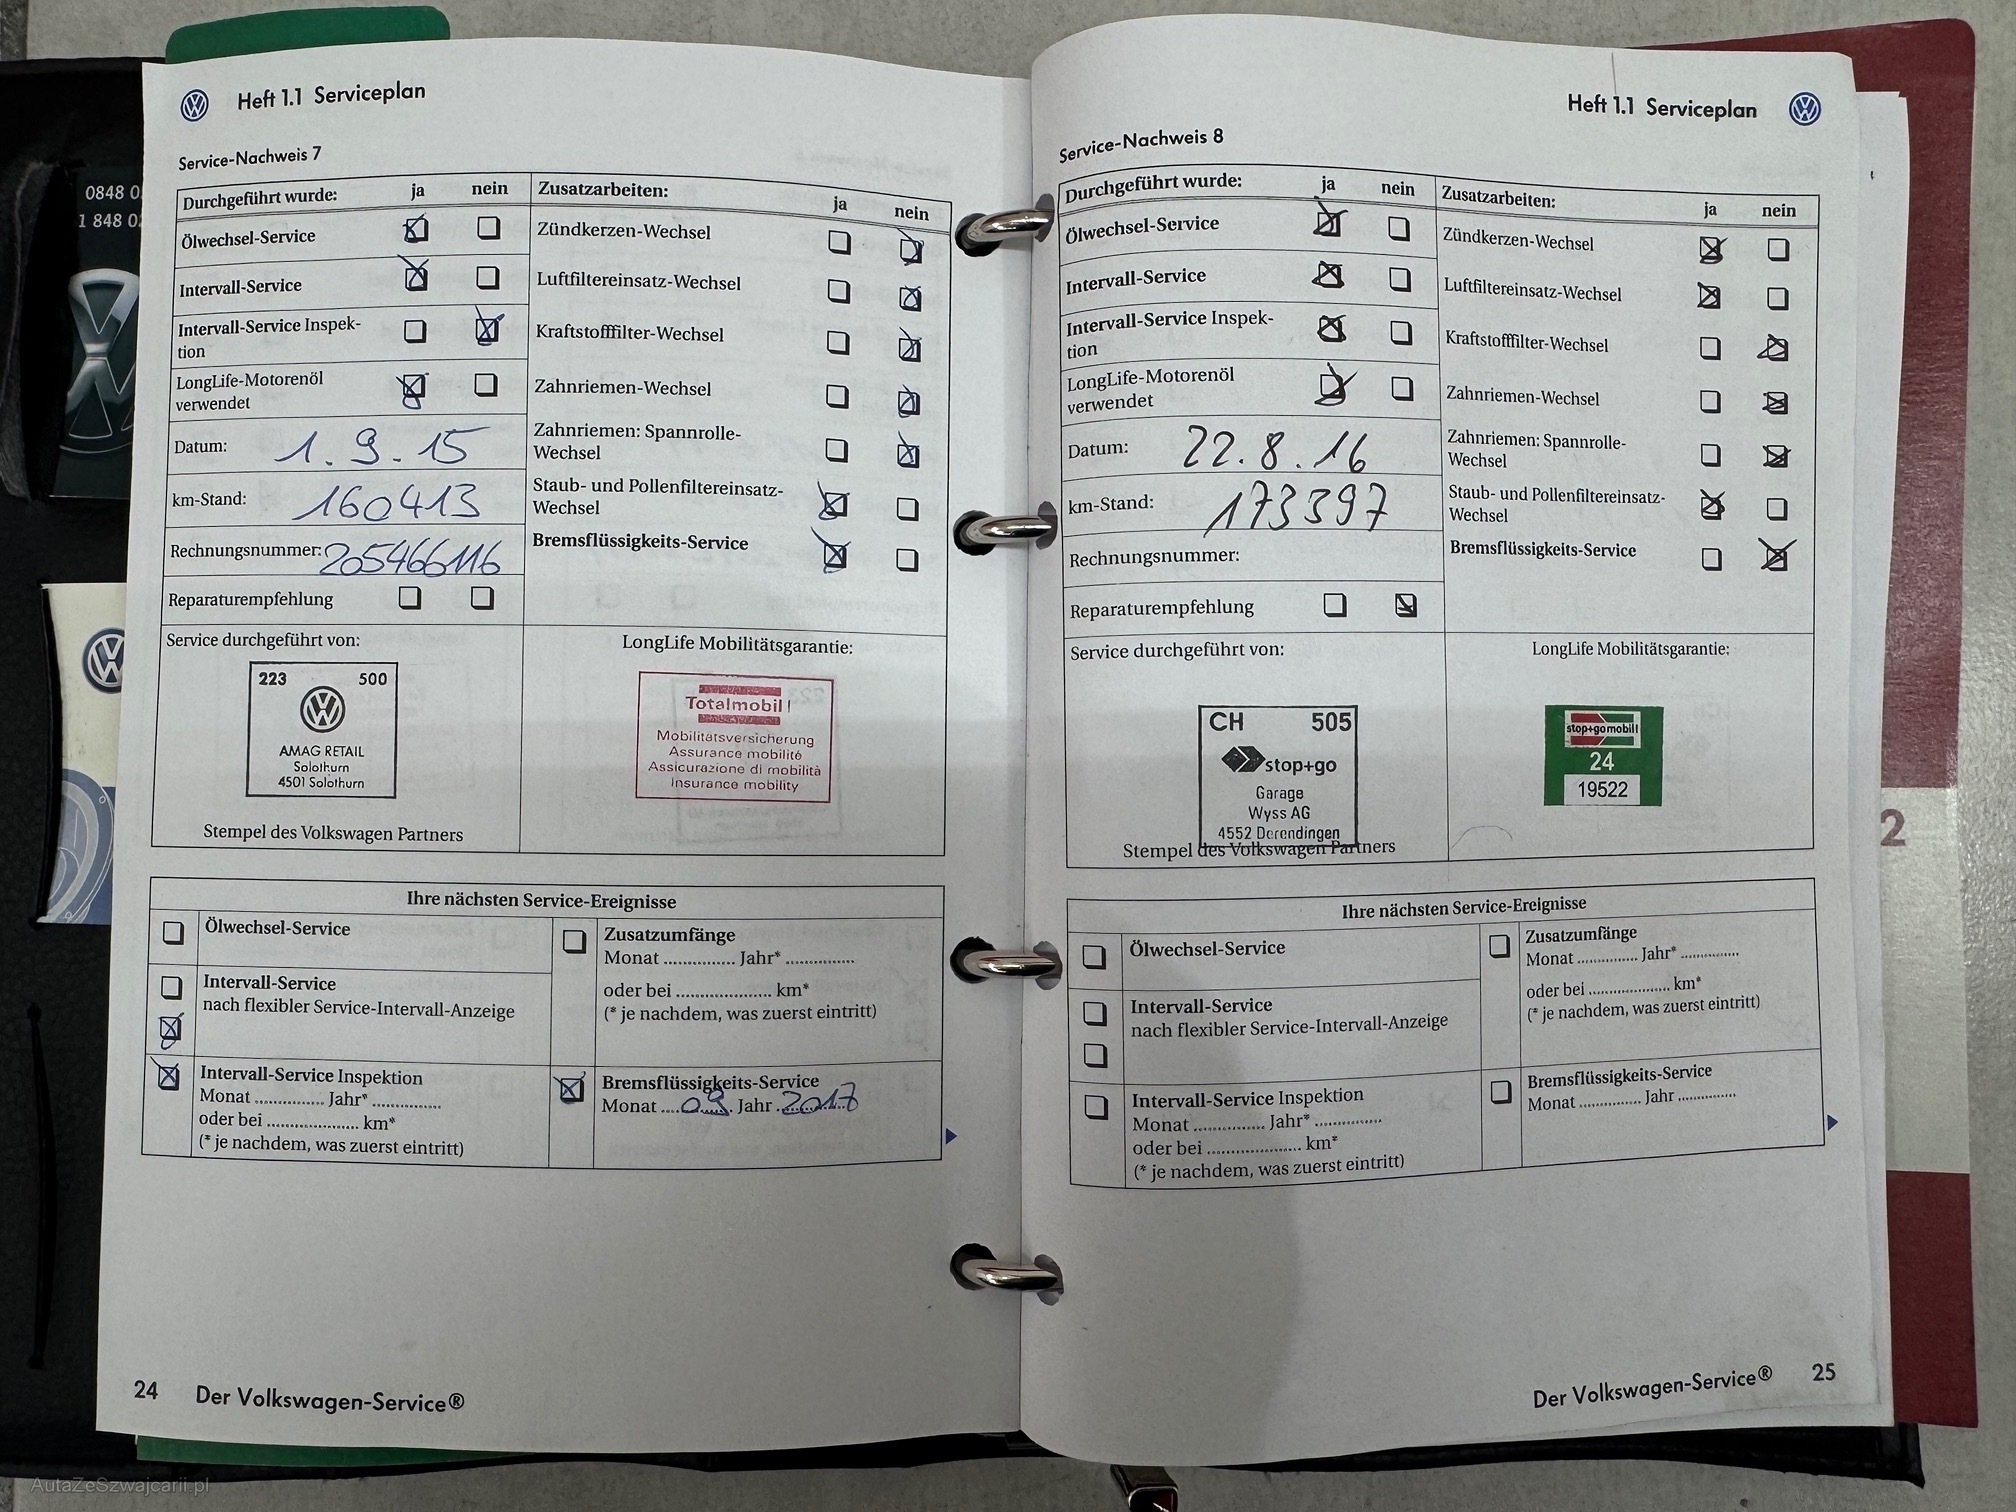 0848 0
1 848 0
Heft 1.1 Serviceplan
Service-Nachweis 7
Durchgeführt wurde: ja nein
Ölwechsel-Service
Intervall-Service
Intervall-Service Inspek-
tion
LongLife-Motorenöl
verwendet
Datum: 1.9.15
km-Stand: 160413
Rechnungsnummer: 205466116
Reparaturempfehlung
Zusatzarbeiten: ja nein
Zündkerzen-Wechsel
Luftfiltereinsatz-Wechsel
Kraftstofffilter-Wechsel
Zahnriemen-Wechsel
Zahnriemen: Spannrolle-
Wechsel
Staub- und Pollenfiltereinsatz-
Wechsel
Bremsflüssigkeits-Service
Service durchgeführt von:
223 500
AMAG RETAIL
Solothurn
4501 Solothurn
Stempel des Volkswagen Partners
LongLife Mobilitätsgarantie:
Totalmobil!
Mobilitätsversicherung
Assurance mobilité
Assicurazione di mobilità
Insurance mobility
Ihre nächsten Service-Ereignisse
Ölwechsel-Service
Intervall-Service
nach flexibler Service-Intervall-Anzeige
Intervall-Service Inspektion
Monat ............... Jahr* ...............
oder bei .................... km*
(* je nachdem, was zuerst eintritt)
Zusatzumfänge
Monat ............... Jahr* ...............
oder bei .................... km*
(* je nachdem, was zuerst eintritt)
Bremsflüssigkeits-Service
Monat ....09.... Jahr 2017
24 Der Volkswagen-Service®
Heft 1.1 Serviceplan
Service-Nachweis 8
Durchgeführt wurde: ja nein
Ölwechsel-Service
Intervall-Service
Intervall-Service Inspek-
tion
LongLife-Motorenöl
verwendet
Datum: 22.8.16
km-Stand: 173397
Rechnungsnummer:
Reparaturempfehlung
Zusatzarbeiten: ja nein
Zündkerzen-Wechsel
Luftfiltereinsatz-Wechsel
Kraftstofffilter-Wechsel
Zahnriemen-Wechsel
Zahnriemen: Spannrolle-
Wechsel
Staub- und Pollenfiltereinsatz-
Wechsel
Bremsflüssigkeits-Service
Service durchgeführt von:
CH 505
stop+go
Garage
Wyss AG
4552 Derendingen
Stempel des Volkswagen Partners
LongLife Mobilitätsgarantie:
stop+gomobil!
24
19522
Ihre nächsten Service-Ereignisse
Ölwechsel-Service
Intervall-Service
nach flexibler Service-Intervall-Anzeige
Intervall-Service Inspektion
Monat ............... Jahr* ...............
oder bei .................... km*
(* je nachdem, was zuerst eintritt)
Zusatzumfänge
Monat ............... Jahr* ...............
oder bei .................... km*
(* je nachdem, was zuerst eintritt)
Bremsflüssigkeits-Service
Monat ............... Jahr ...............
Der Volkswagen-Service® 25
2
AutaZeSzwajcarii.pl